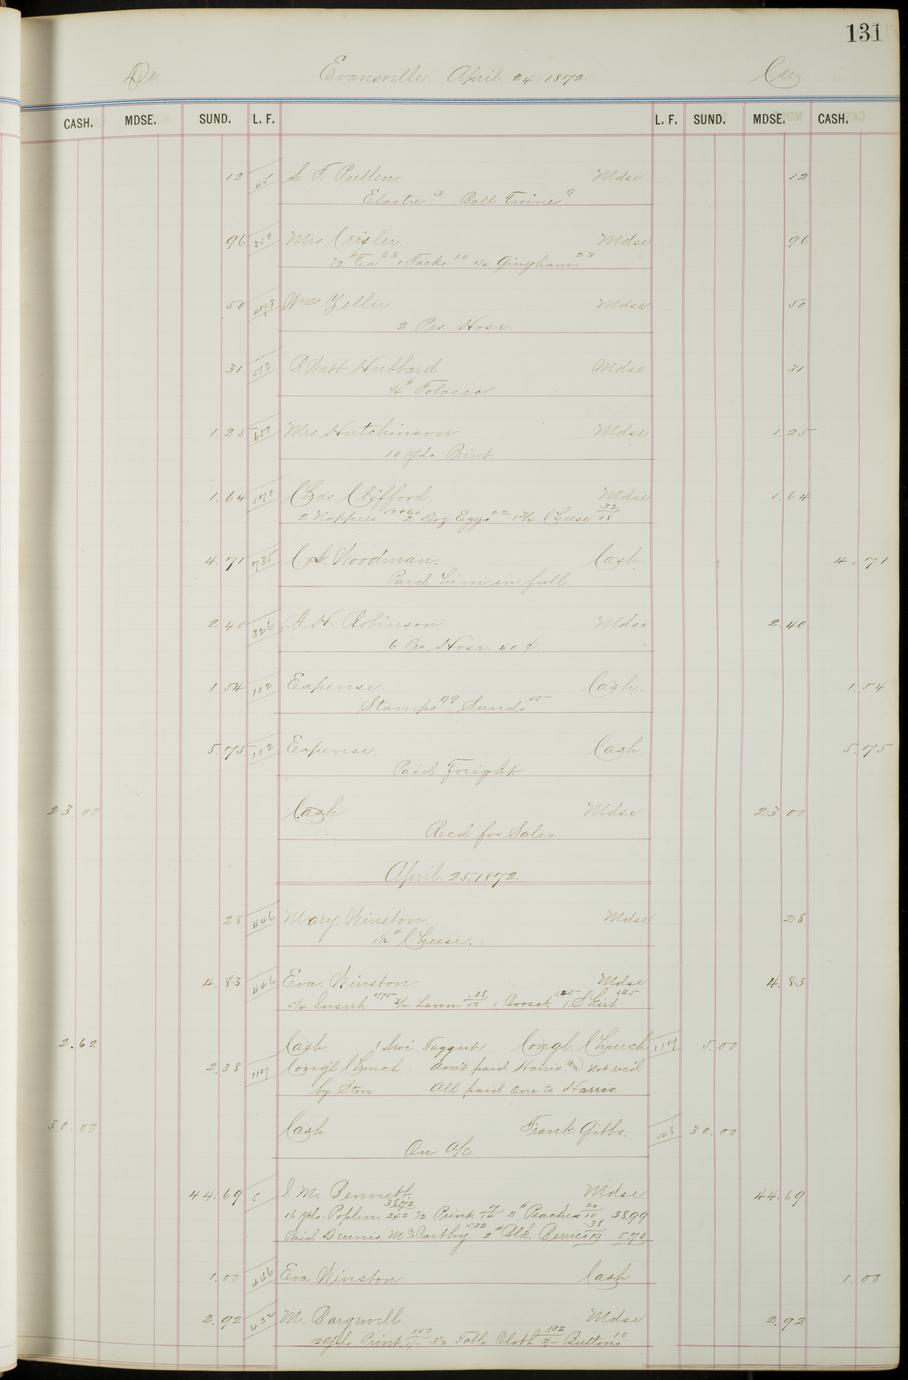 131
Dr. Evansville April 24. 1872 Cr.
CASH. MDSE. SUND. L. F. L. F. SUND. MDSE. CASH.
12 Pullen. Mdse 12
Elastic 3 Ball Twine 9
96 Mrs. Crisler. Mdse 96
1/2 # Tea 63 1 Tacks 10 Gingham 23
50 Zeller Mdse 50
2 Prs Hose
31 Hubbard Mdse 31
Tobacco
1.25 650 Mrs. Hutchinson Mdse 1.25
10 Yds. Print
1.64 Chas. Clifford. Mdse 1.64
2 Nappies 2 Doz Eggs 22 Cheese 32/18
4.71 735 Woodman. Cash. 4.71
Paid him in full
2.40 326 H. Robinson Mdse 2.40
6 Prs Hose 40 ¢.
1.54 102 Expense. Cash. 1.54
Stamps 99 Sunds 55
5.75 102 Expense. Cash. 5.75
Paid Freight
23.00 Cash Mdse 23.00
Recd for Sales
April 25. 1872.
28 446 Mary. Winston. Mdse 28
Cheese.
4.83 446 Eva. Winston Mdse 4.83
Lawn 1 Corset 1 Skirt 125
2.62 Cash Congl Church 117 5.00
2.38 117 Congl Church don't paid Harris Not rec'd
by Ston All paid over to Harris.
30.00 Cash Frank Gibbs. 30.00
On A/c.
44.69 5 M. Bennett. Mdse 44.69
16 Yds. Poplin 1/2 Print 2 # Peaches 20/10 38.99
Paid Dennis McCarthy 532 2 # Blk. Berries 38/19 5.70
1.00 446 Eva Winston Cash 1.00
2.92 M. Mdse 2.92
Print Table Cloth Buttons 10